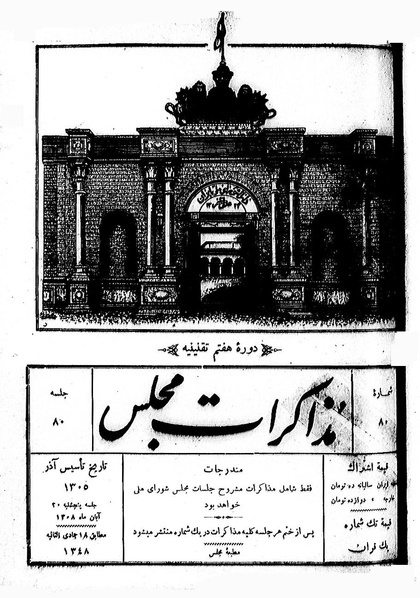 دورهٔ هفتم تقنینیه
شمارهٔ
۸۰
مذاکرات مجلس
جلسه
۸۰
قیمة اشتراک
ایران سالیانه ده تومان
خارجه دوازده تومان
قیمة تک شماره
یک قران
مندرجات
فقط شامل مذاکرات مشروح جلسات مجلس شورای ملی
خواهد بود
پس از ختم هر جلسه کلیه مذاکرات در یک شماره منتشر میشود
مطبعهٔ مجلس
تاریخ تأسیس آذر
۱۳۰۵
جلسه پنجشنبه ۲۰
آبان ماه ۱۳۰۸
مطابق ۱۸ جمادی الثانیه
۱۳۴۸